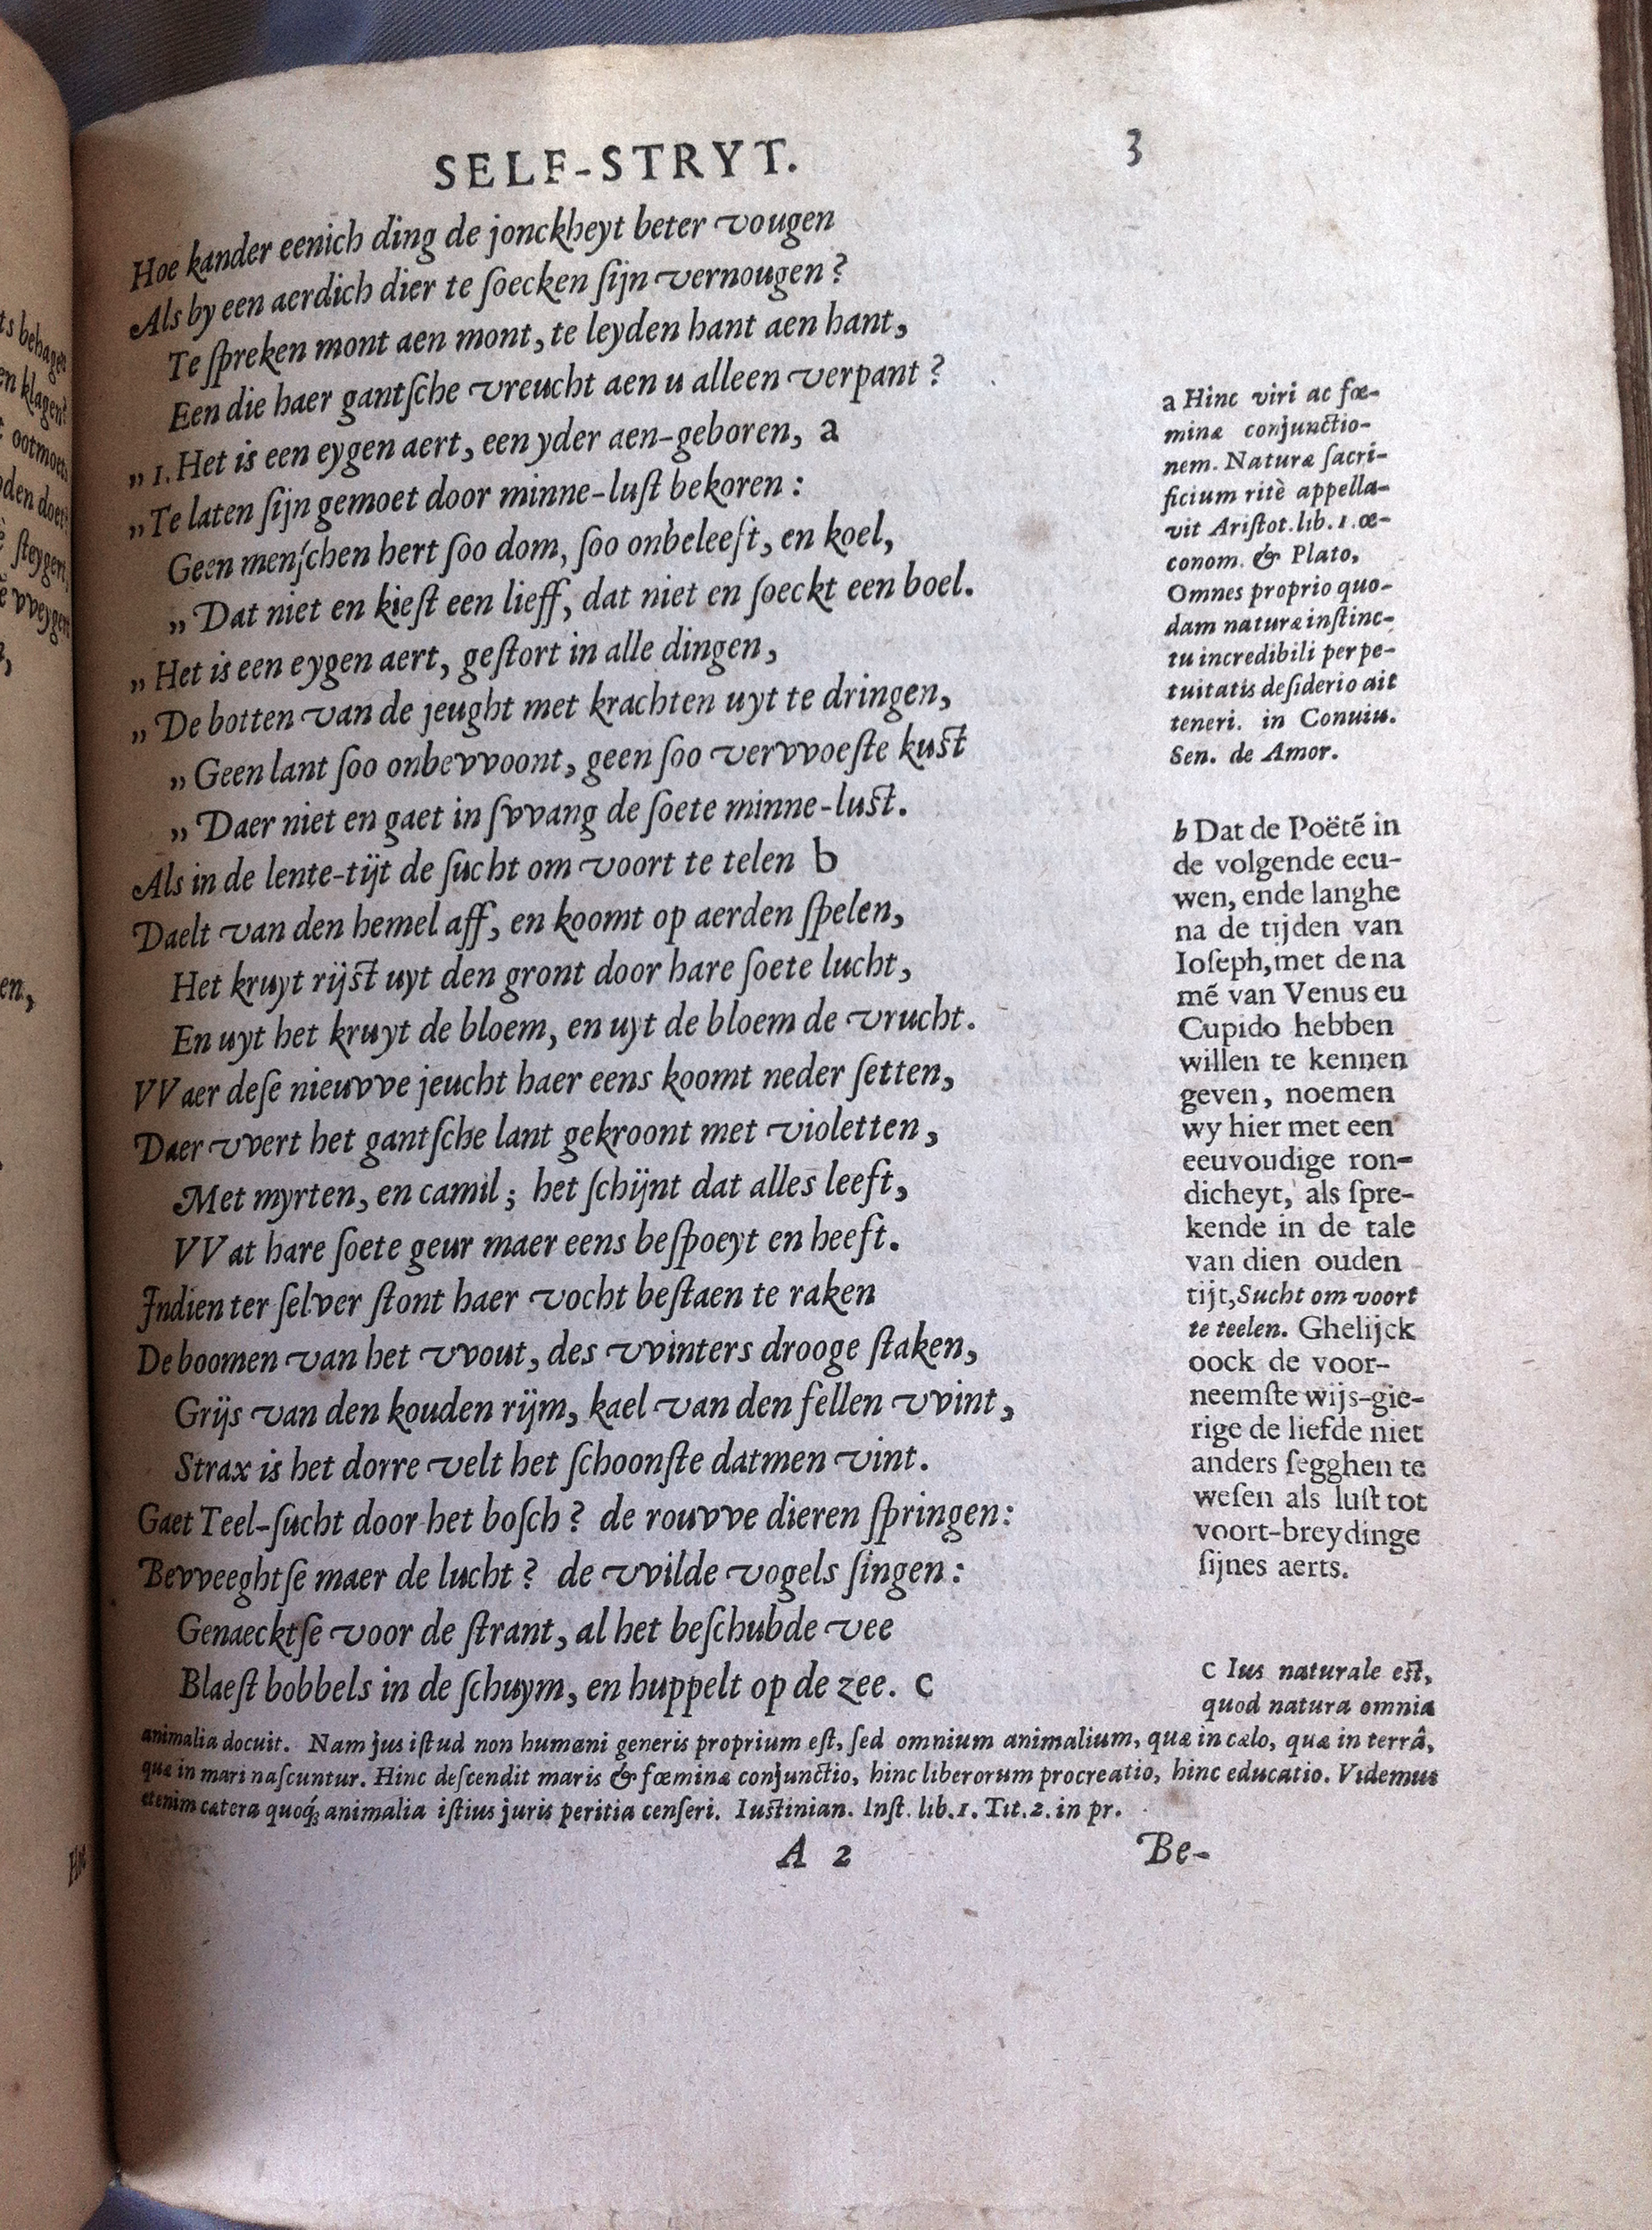 SELF-STRYT.
3
Hoe kander eenich ding de jonckheyt beter vougen
Als by een aerdich dier te ſoecken ſijn vernougen?
Te ſpreken mont aen mont, te leyden hant aen hant,
Een die haer gantſche vreucht aen u alleen verpant?
„ 1. Het is een eygen aert, een yder aen-geboren, a
„ Te laten ſijn gemoet door minne-luſt bekoren:
Geen menſchen hert ſoo dom, ſoo onbeleeft, en koel,
„ Dat niet en kieſt een lieff, dat niet en ſoeckt een boel.
„ Het is een eygen aert, geſtort in alle dingen,
„ De botten van de jeught met krachten uyt te dringen,
„ Geen lant ſoo onbevvoont, geen ſoo vervvoeſte kuſt
„ Daer niet en gaet in ſvvang de ſoete minne-luſt.
Als in de lente-tijt de ſucht om voort te telen b
Daelt van den hemel aff, en koomt op aerden ſpelen,
Het kruyt rijſt uyt den gront door hare ſoete lucht,
En uyt het kruyt de bloem, en uyt de bloem de vrucht.
VVaer deſe nieuvve jeucht haer eens koomt neder ſetten,
Daer vvert het gantſche lant gekroont met violetten,
Met myrten, en camil; het ſchijnt dat alles leeft,
VVat hare ſoete geur maer eens beſpoeyt en heeft.
Indien ter ſelver ſtont haer vocht beſtaen te raken
De boomen van het vvout, des vvinters drooge ſtaken,
Grijs van den kouden rijm, kael van den fellen vvint,
Strax is het dorre velt het ſchoonſte datmen vint.
Gaet Teel-ſucht door het boſch? de rouvve dieren ſpringen:
Bevveeghtſe maer de lucht? de vvilde vogels ſingen:
Genaecktſe voor de ſtrant, al het beſchubde vee
Blaeſt bobbels in de ſchuym, en huppelt op de zee. c
a Hinc viri ac fœ-
minæ conjunctio-
nem. Naturæ ſacri-
ficium ritè appella-
vit Ariſtot. lib. 1. œ-
conom. & Plato,
Omnes proprio quo-
dam naturæ inſtinc-
tu incredibili perpe-
tuitatis deſiderio ait
teneri. in Conuiu.
Sen. de Amor.
b Dat de Poëtẽ in
de volgende eeu-
wen, ende langhe
na de tijden van
Ioſeph, met de na
mẽ van Venus eu
Cupido hebben
willen te kennen
geven, noemen
wy hier met een
eeuvoudige ron-
dicheyt, als ſpre-
kende in de tale
van dien ouden
tijt, Sucht om voort
te teelen. Ghelijck
oock de voor-
neemſte wijs-gie-
rige de liefde niet
anders ſegghen te
weſen als luſt tot
voort-breydinge
ſijnes aerts.
c Ius naturale eſt,
quod natura omnia
animalia docuit. Nam jus iſtud non humani generis proprium eſt, ſed omnium animalium, quæ in cælo, quæ in terrâ,
quæ in mari naſcuntur. Hinc deſcendit maris & fœminæ conjunctio, hinc liberorum procreatio, hinc educatio. Videmus
etenim cætera quoq; animalia iſtius juris peritia cenſeri. Iuſtinian. Inſt. lib. 1. Tit. 2. in pr.
A 2
Be-